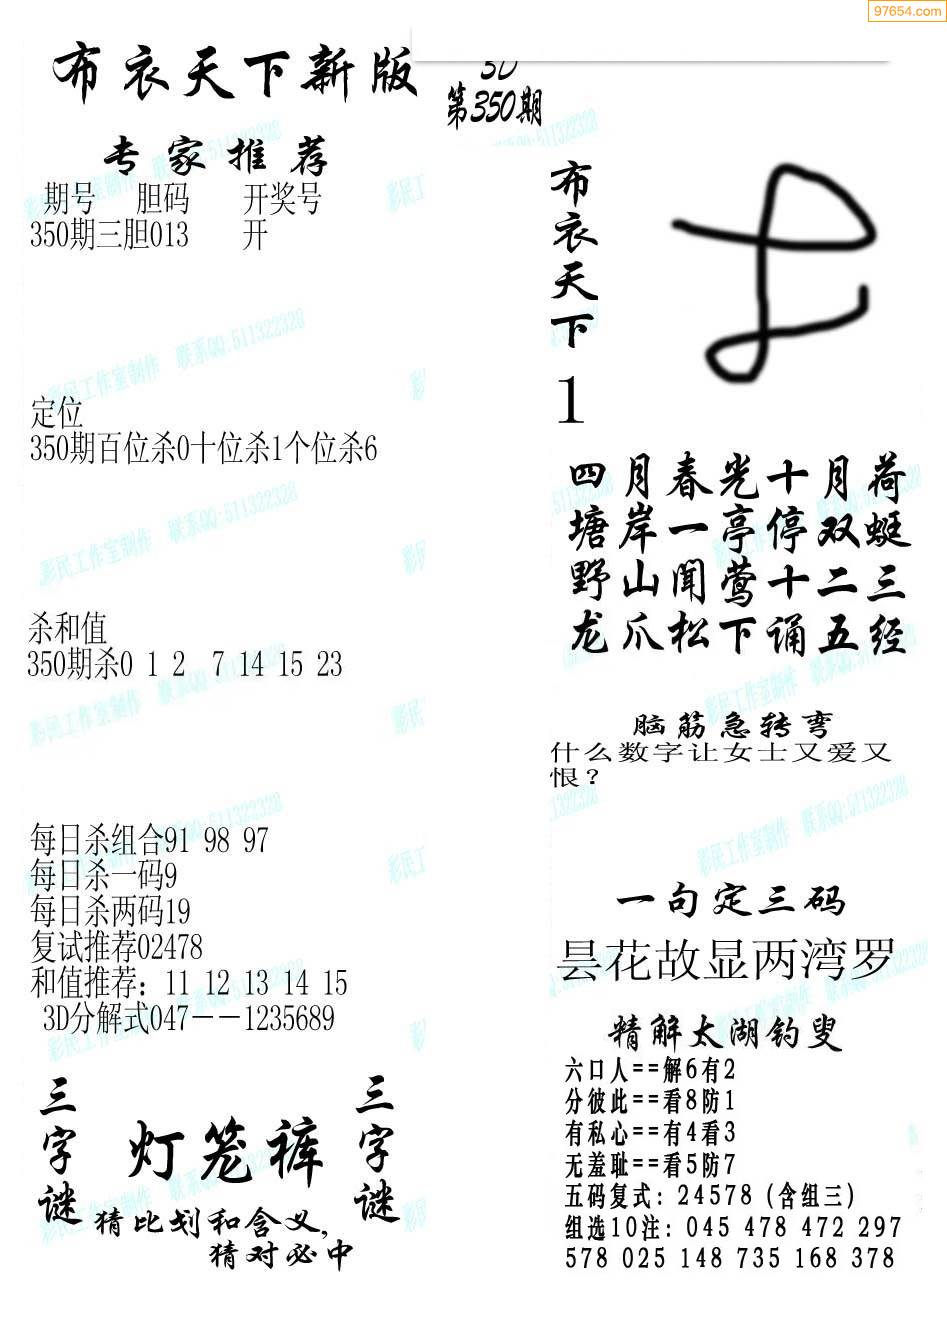 97654.com
布衣天下新版
3D
第350期
专家推荐
期号 胆码 开奖号
350期三胆013 开
定位
350期百位杀0十位杀1个位杀6
杀和值
350期杀0 1 2 7 14 15 23
每日杀组合91 98 97
每日杀一码9
每日杀两码19
复试推荐02478
和值推荐：11 12 13 14 15
3D分解式047－－1235689
三字谜
灯笼裤
三字谜
猜比划和含义，
猜对必中
布衣天下
1
四月春光十月荷
塘岸一亭停双蜓
野山闻莺十二三
龙爪松下诵五经
脑筋急转弯
什么数字让女士又爱又
恨？
一句定三码
昙花故显两湾罗
精解太湖钓叟
六口人==解6有2
分彼此==看8防1
有私心==有4看3
无羞耻==看5防7
五码复式: 24578 (含组三)
组选10注: 045 478 472 297
578 025 148 735 168 378
彩民工作室制作 联系QQ:511322328